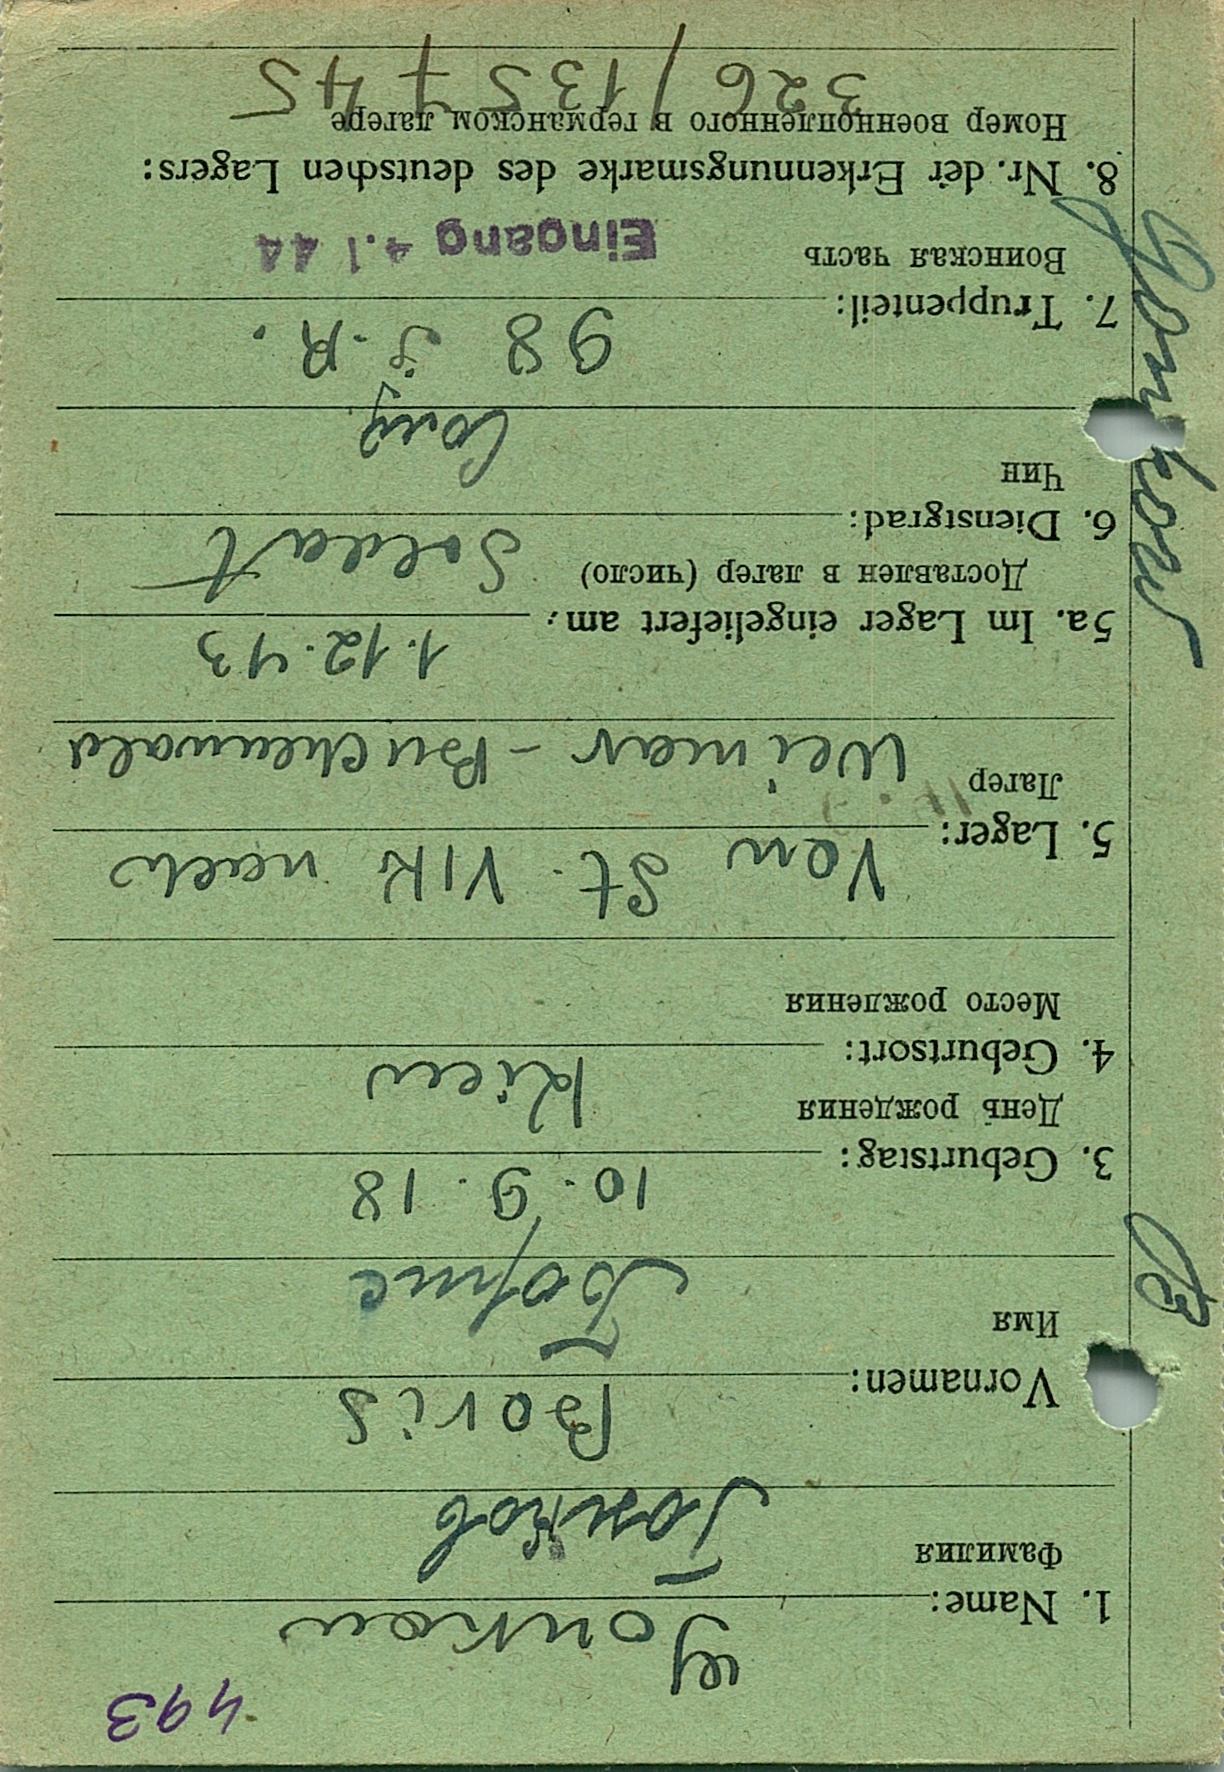 493
Gonkow
1. Name:
Фамилия
Гонков
Boris
Vornamen:
Имя
Борис
10. 9. 18
3. Geburtstag:
День рождения
Kiew
4. Geburtsort:
Место рождения
Von St. VI K nach
5. Lager:
Лагер
Weimar - Buchenwald
1. 12. 43
5a. Im Lager eingeliefert am:
Доставлен в лагер (число)
Soldat
6. Dienstgrad:
Чин
98 J.R.
7. Truppenteil:
Воинская часть
Eingang 4.1.44
8. Nr. der Erkennungsmarke des deutschen Lagers:
Номер военнопленного в германском лагере
326/135745
Gonkow